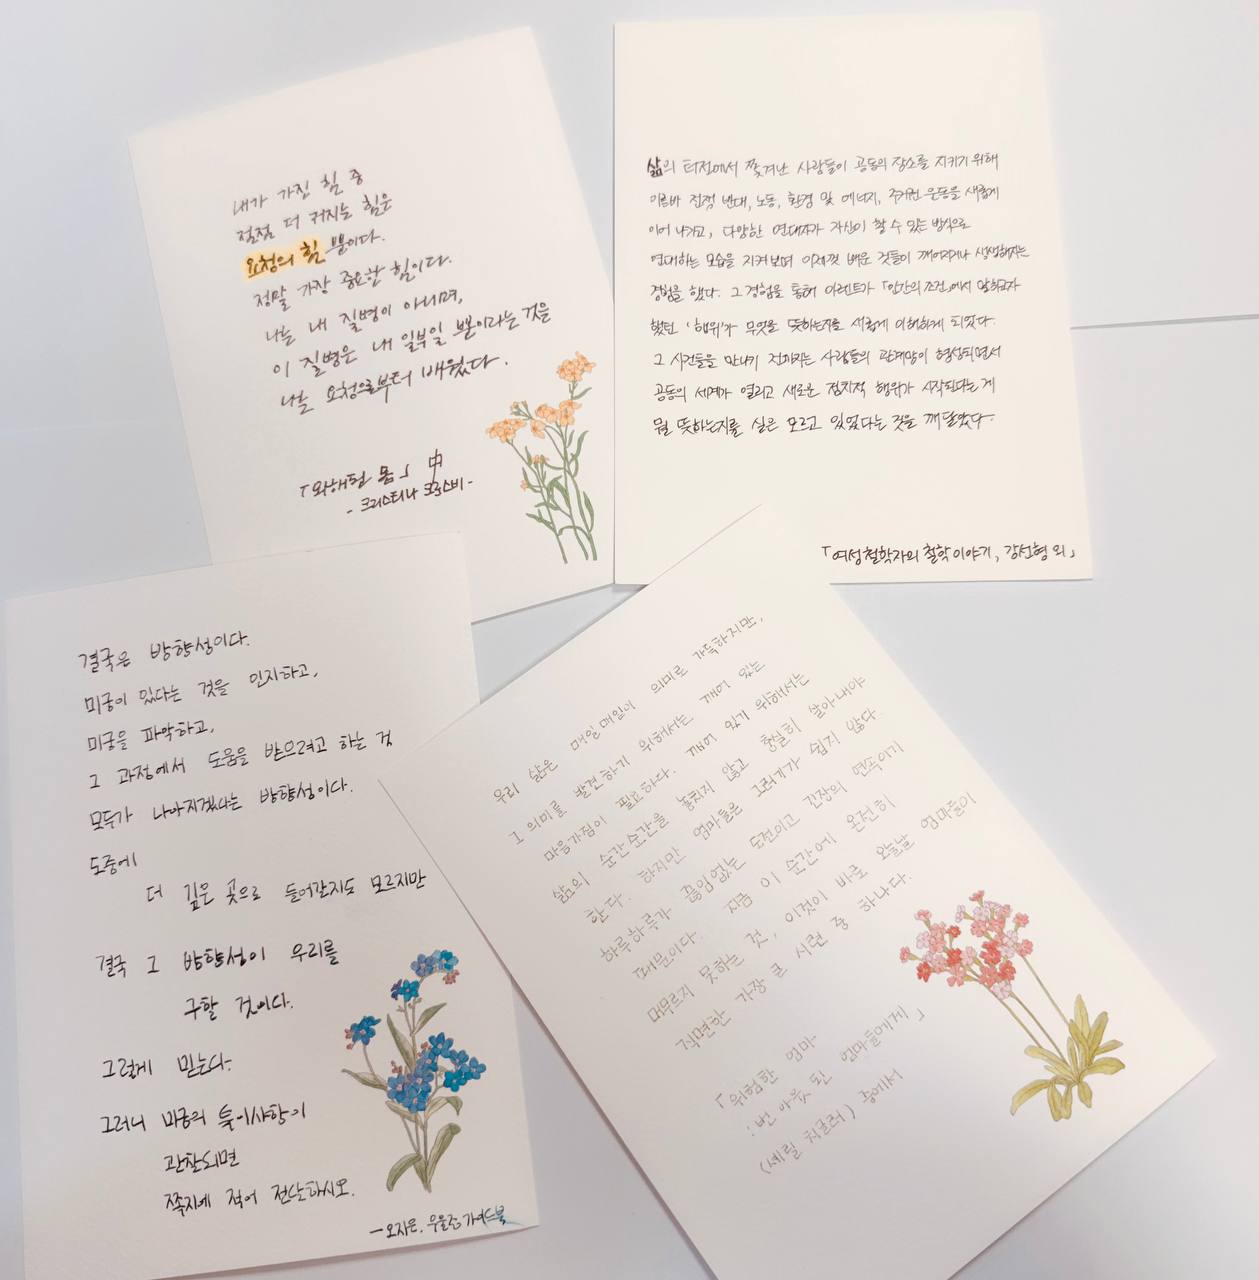 내가 가진 힘 중
점점 더 커지는 힘은
요청의 힘 뿐이다.
정말 가장 중요한 힘이다.
나는 내 질병이 아니며,
이 질병은 내 일부일 뿐이라는 것을
나는 요청으로부터 배웠다.
「와해된 몸」 中
- 크리스티나 크로스비 -
삶의 터전에서 쫓겨난 사람들이 공동의 장소를 지키기 위해
이른바 전쟁 반대, 노동, 환경 및 에너지, 주거권 운동을 새롭게
이어 나가고, 다양한 연대자가 자신이 할 수 있는 방식으로
연대하는 모습을 지켜보며 이제껏 배운 것들이 깨어지거나 생생해지는
경험을 했다. 그 경험을 통해 아렌트가 「인간의 조건」에서 말하고자
했던 '행위'가 무엇을 뜻하는지를 새롭게 이해하게 되었다.
그 사건들을 만나기 전까지는 사람들의 관계망이 형성되면서
공동의 세계가 열리고 새로운 정치적 행위가 시작된다는 게
뭘 뜻하는지를 실은 모르고 있었다는 것을 깨달았다.
「여성철학자의 철학이야기, 강선형 외」
결국은 방향성이다.
미궁이 있다는 것을 인지하고,
미궁을 파악하고,
그 과정에서 도움을 받으려고 하는 것
모두가 나아지겠다는 방향성이다.
도중에
더 깊은 곳으로 들어갈지도 모르지만
결국 그 방향성이 우리를
구할 것이다.
그렇게 믿는다.
그러니 미궁의 특이사항이
관찰되면
쪽지에 적어 전달하시오.
- 오지은, 우울증 가이드북
우리 삶은 매일매일이 의미로 가득하지만,
그 의미를 발견하기 위해서는 깨어 있는
마음가짐이 필요하다. 깨어 있기 위해서는
삶의 순간순간을 놓치지 않고 충실히 살아내야
한다. 하지만 엄마들은 그러기가 쉽지 않다.
하루하루가 끊임없는 도전이고 긴장의 연속이기
때문이다. 지금 이 순간에 온전히
머무르지 못하는 것, 이것이 바로 오늘날 엄마들이
직면한 가장 큰 시련 중 하나다.
「위험한 엄마
: 번 아웃 된 엄마들에게」
(셰릴 치글러) 중에서